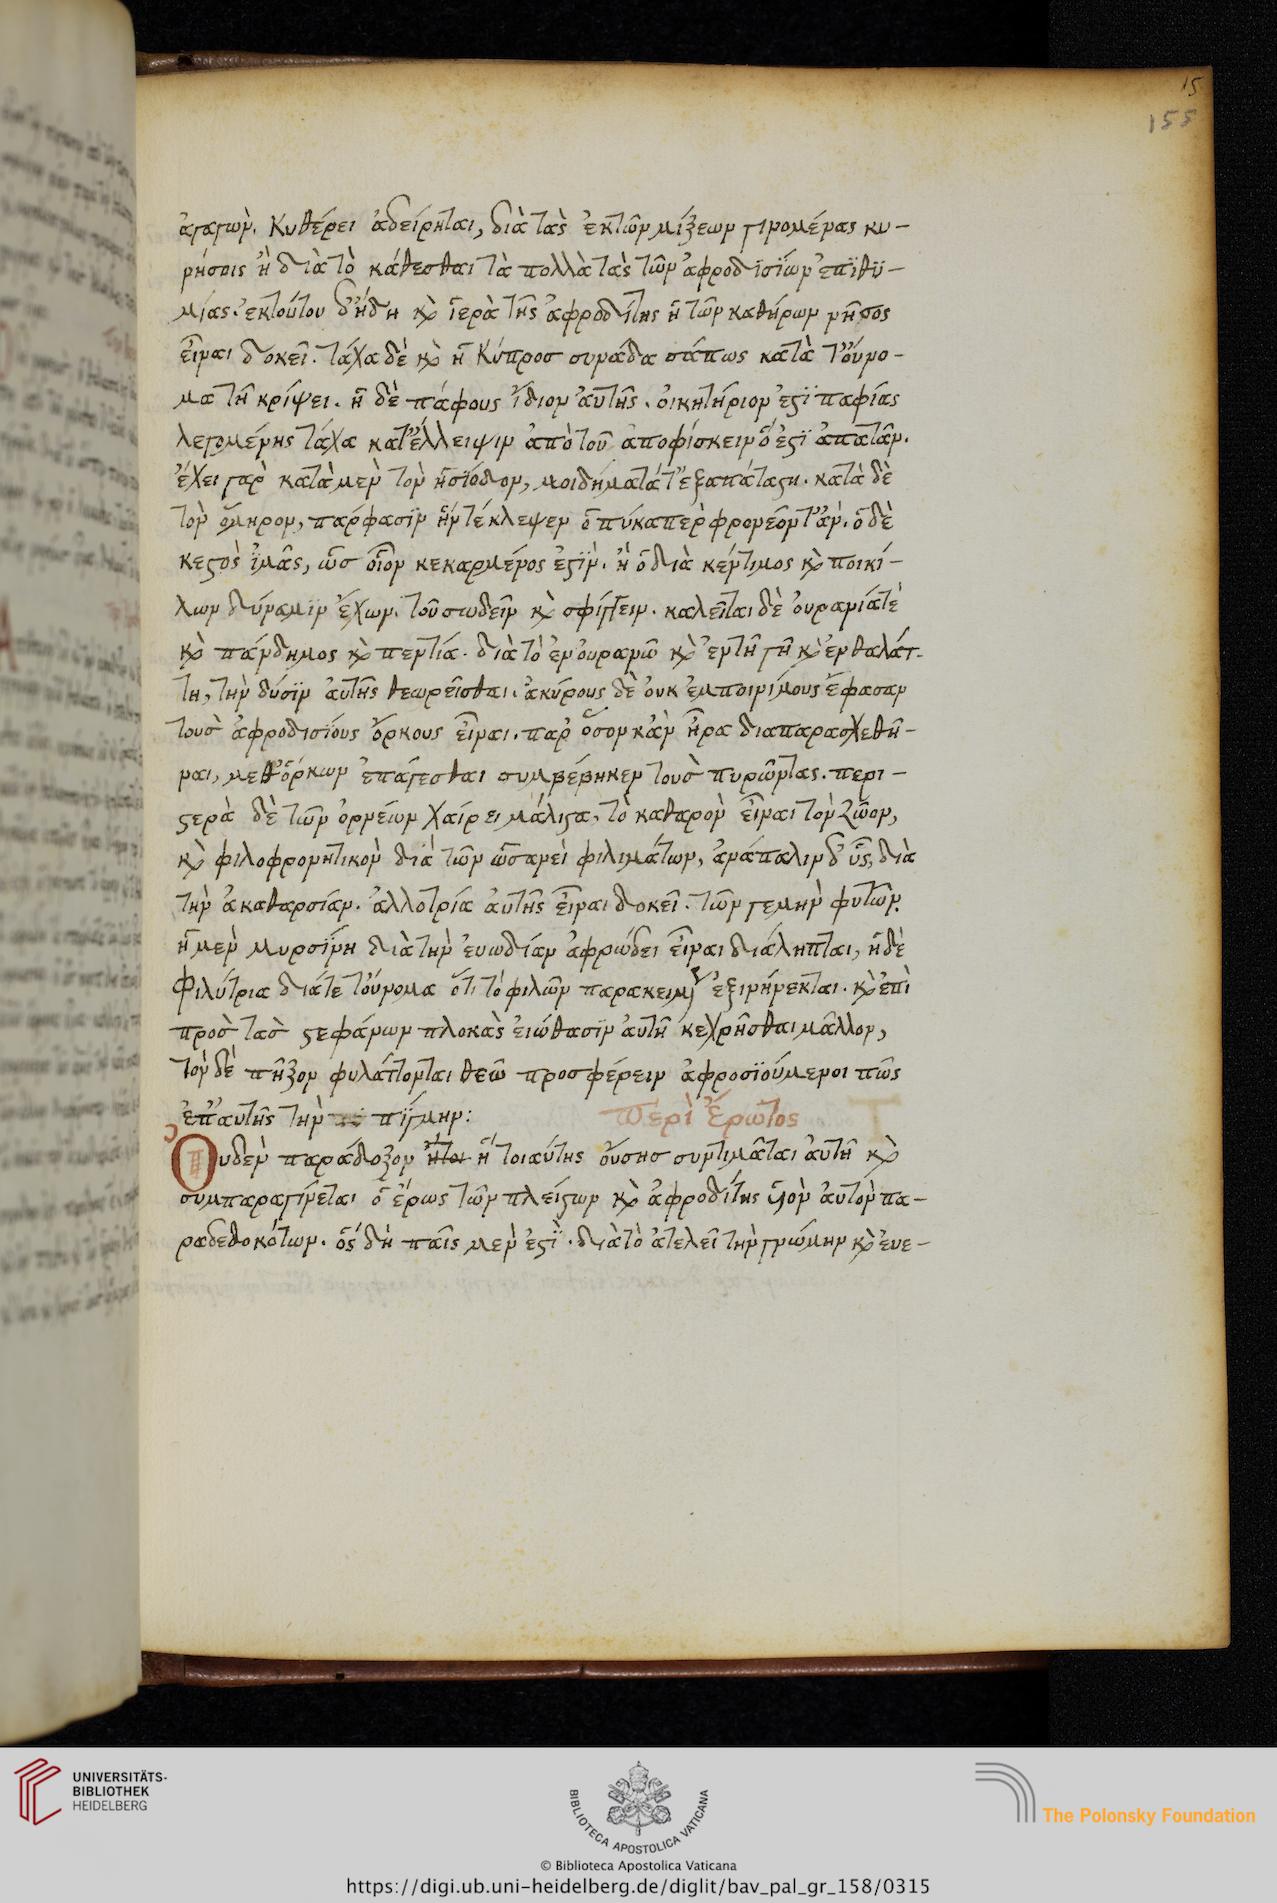 15
155
ἀγαγών. Κυθέρει ἀδείρηται, διὰ τὰς ἐκ τῶν μίξεων γινομένας κυ-
νήσσις ἢ διὰ τὸ κάθεσθαι τὰ πολλὰ τὰς τῶν ἀφροδϊσΐων ἐπϊθϋ-
μίας. ἐκτούτου δ' ἤδη κ̀ ἱερὰ τῆς ἀφροδίτης ἡ τῶν καθήρων νῆσος
εἶναι δοκεῖ. τάχα δὲ κ̀ ἡ Κύπροσ συνάδα πάπως κατὰ τ' οὔνο-
μα τῆ κρίψει. ἡ δὲ πάφους ἴδιον ἀυτῆς. οἰκητήριον ἐστϊ παφίας
λεγομένης τάχα κατ' ἔλλειψιν ἀπὸ τοῦ ἀποφίσκειν ὅ ἐστϊ ἀπατᾶν.
ἔχει γαρ̀ κατὰ μεν̀ τον̀ ἡσΐοδον, μοιδήματά τ' ἐξαπάτας τι. κατὰ δὲ
τον̀ ὅμηρον, πάρφασϊν ἥν τέκλεψεν ὁ πύκαπερ̀ φρονεόντ' ἄν. ὁ δὲ
κεστὸς ἰ̈μᾶς, ὡσ οἷον κεκαρμένος ἐστΐν. ἢ ὁ διὰ κέντιμος κ̀ ποικί-
λων δύναμϊν ἔχων. τοῦ συδεῖν κ̀ σφίγγειν. καλεῖται δὲ ὀυρανίά τὲ
κ̀ πάνδημος κ̀ πεντία. διὰ τὸ ἐν ὀυρανῶ κ̀ ἐν τῆ γῆ κ̀ ἐν θαλάτ-
τη, την̀ δύσϊν ἀυτῆς θεωρεῖσθαι. ἀκύρους δὲ ὀυκ ἐμποινίμους ἔφασαν
τουσ̀ ἀφροδισΐους ὅρκους εἶναι. παρ' ὅσον κἀν̀ ἦρα διαπαρασχεθῆ-
ναι, μεθ' ὅρκων ἐπάγεσθαι συμβέβηκεν τουσ̀ πυρῶντας. περι-
στερὰ δὲ τῶν ὀρνέων χαίρει μάλιστα, τὸ καθαρον̀ εἶναι τον̀ ζῶον,
κ̀ φιλοφρονητικον̀ διά τῶν ὡσανεὶ φιλιμάτων, ἀνάπαλιν δ' ὗς, διὰ
την̀ ἀκαθαρσίαν. ἀλλοτρία ἀυτῆς εἶναι δοκεῖ. τῶν γεμην̀ φυτῶν.
ἡ μεν̀ μυρσΐνη διὰ την̀ ἐυωδίαν ἀφρώδει εἶναι διάληπται, ἡ δὲ
Φιλύτρια διά τε τ' οὔνομα ὅτι τό φιλῶν παρακειμ ἐξινήνεκται. κ̀ ἐπὶ
προσ̀ τασ̀ στεφάνων πλοκὰς ἐιώθασϊν ἀυτῆ κεχρῆσθαι μᾶλλον,
τον̀ δὲ πῆξον φυλάττονται θεῶ προσφέρειν ἀφροσϊούμενοι πῶς
ἐπ' ἀυτῆς την̀ πΐγμην:
Περὶ Ἔρωτος
Ουδεν̀ παράδοξον ἤτοι ἡ τοιαύτης οὔσησ συντιμᾶται ἀυτῆ κ̀
συμπαραγίνεται ὁ ἔρως τῶν πλείστων κ̀ ἀφροδίτης ὑϊὸν ἀυτὸν πα-
ραδεδοκότων. ὅς δὴ παῖς μεν̀ ἐστῒ. διὰ τὸ ἀτελεῖ την̀ γνώμην κ̀ ἐυε-
UNIVERSITÄTS-
BIBLIOTHEK
HEIDELBERG
BIBLIOTECA APOSTOLICA VATICANA
The Polonsky Foundation
© Biblioteca Apostolica Vaticana
https://digi.ub.uni-heidelberg.de/diglit/bav_pal_gr_158/0315